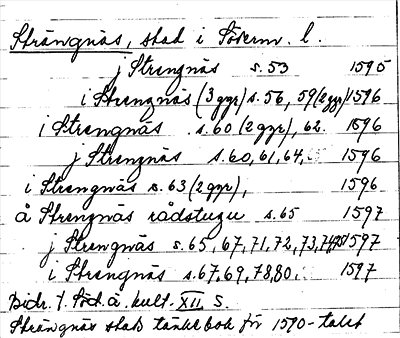 Strängnäs, stad i Söderm. l.
j Strengnäs s. 53 1595
i Strengnäs (3 ggr) s. 56, 59 (2 ggr) 1596
i Strengnäs s. 60 (2 ggr), 62. 1596
j Strengnäs s. 60, 61, 64, 1596
i Strengnäs s. 63 (2 ggr), 1596
å Strengnäs rådstugu s. 65 1597
j Strengnäs s. 65, 67, 71, 72, 73, 1597
i Strengnäs s. 67, 69, 78, 80. 1597
Bidr. t. Söd. ä. kult. XII S.
Strängnäs stads tänkebok för 1590-talet